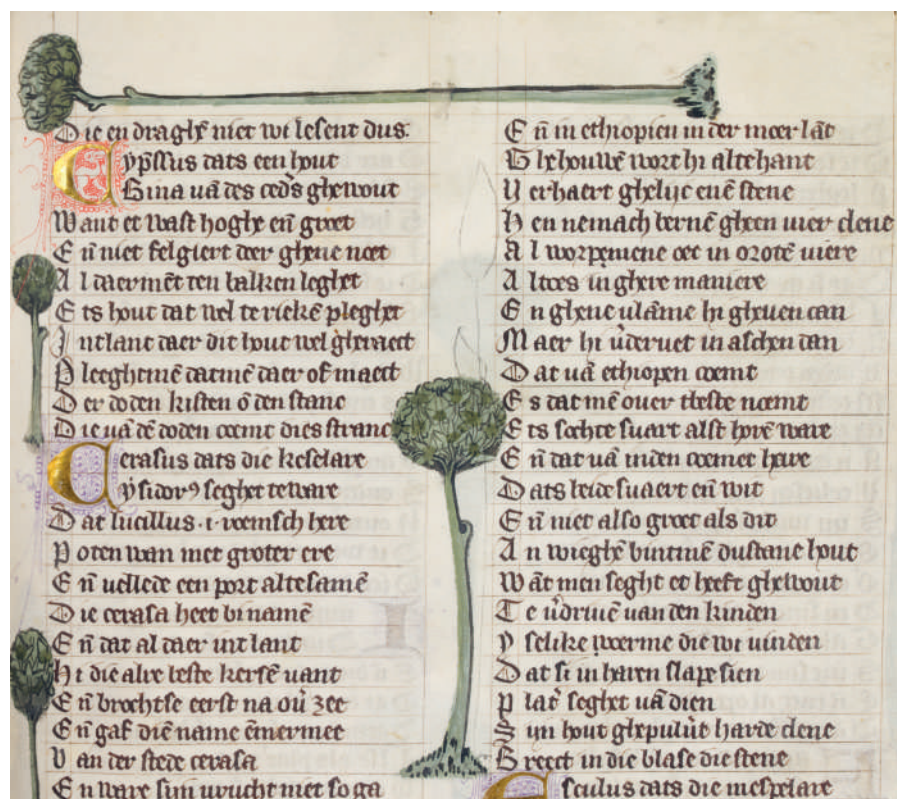 Die en draghẽ niet wi lesent dus.
Cypssus dats een hout
Bina vã des ced's ghewout
Want et wast hoghe eñ groet
Eñ niet
Al daermẽt ten balken leghet
Ets hout dat wel te riekẽ pleghet
Int lant daer dit hout wel gheraect
Pleeghtmẽ datmẽ daer of maect
Der doden kisten õ den stanc
Die vã dẽ doden coemt dies stranc
Cerasus dats die keselare
Ysidorꝰ seghet te ware
Dat lucillus .i. roemsch here
Poten wan met groter ere
Eñ vellede een port altesamẽ
Die cerasa heet bi namẽ
Eñ dat al daer int lant
Hi die alre beste kersẽ vant
Eñ brochtse eerst na oũ zee
Eñ gaf diẽ name ẽmermee
Van der stede cerasa
En ware sijn vrucht niet so ga
Eñ in ethiopien in der moer lãt
Ghehouwẽ wort hi altehant
Verhaert ghelijc enẽ stene
Hen nemach bernẽ gheen vier clene
Al worpemene oec in grotẽ viere
Altoes in ghere maniere
En ghene vlãme hi gheuen can
Maer hi ũderuet in asschen dan
Dat vã ethiopen coemt
Es dat mẽ ouer tbeste noemt
Ets sochte suart alst horẽ ware
Eñ dat vã inden coemet hare
Dats beide suaert eñ wit
Eñ niet also groet als dit
An wieghẽ bintmẽ dustane hout
Wãt men seght et heeft ghewout
Te ũdriuẽ van den kinden
Yselike vorme die wi vinden
Dat si in haren slape sien
Plat' seghet vã dien
Sijn hout ghepulũt harde clene
Breect in die blase die stene
Esculus dats die mespelare